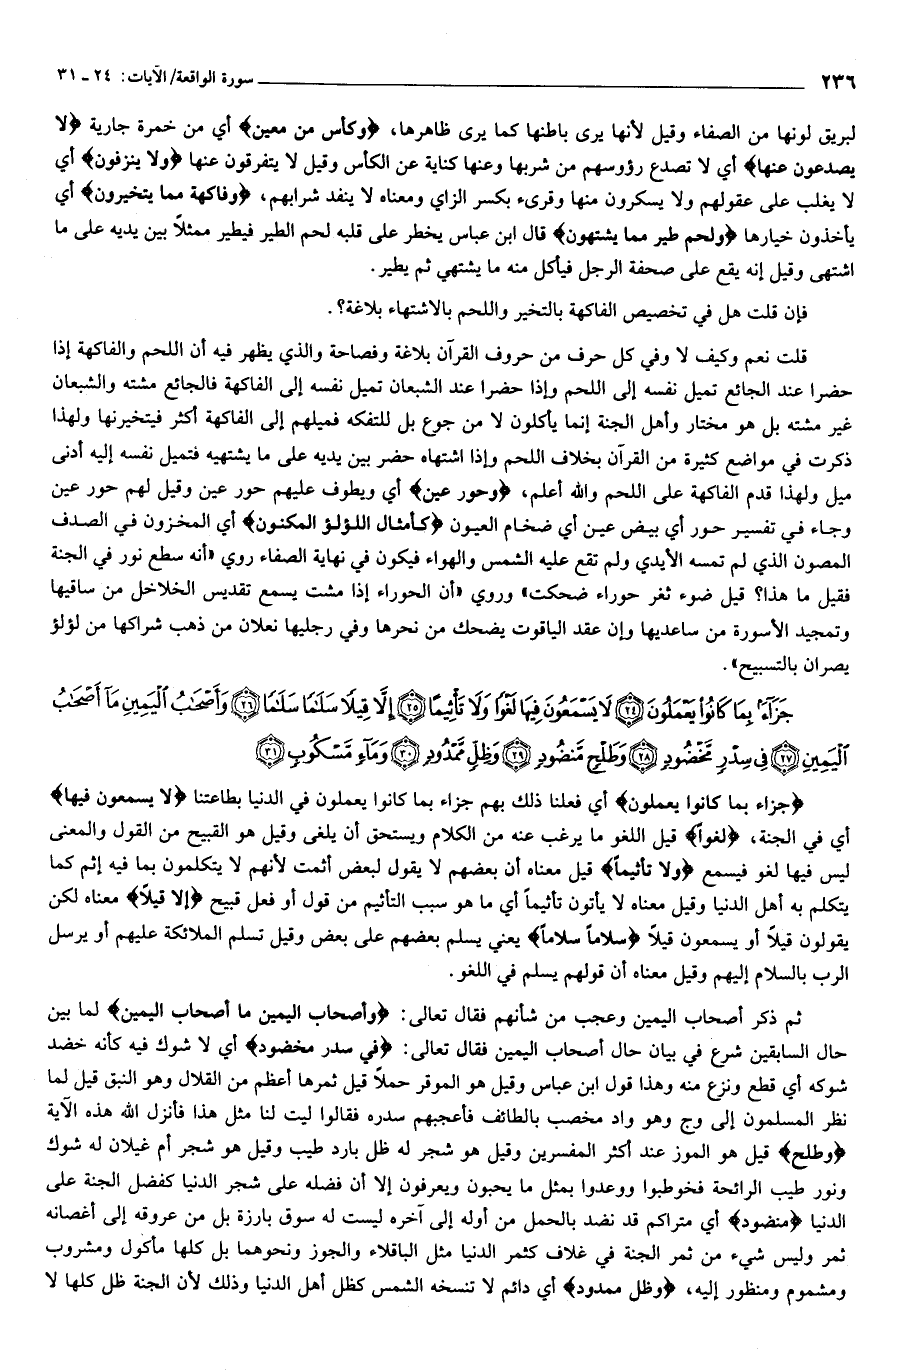 ٢٣٦ سورة الواقعة/ الآيات: ٢٤ ـ ٣١
لبريق لونها من الصفاء وقيل لأنها يرى باطنها كما يرى ظاهرها، ﴿وكأس من معين﴾ أي من خمرة جارية ﴿لا
يصدعون عنها﴾ أي لا تصدع رؤوسهم من شربها وعنها كناية عن الكأس وقيل لا يتفرقون عنها ﴿ولا ينزفون﴾ أي
لا يغلب على عقولهم ولا يسكرون منها وقرىء بكسر الزاي ومعناه لا ينفد شرابهم، ﴿وفاكهة مما يتخيرون﴾ أي
يأخذون خيارها ﴿ولحم طير مما يشتهون﴾ قال ابن عباس يخطر على قلبه لحم الطير فيطير ممثلاً بين يديه على ما
اشتهى وقيل إنه يقع على صحفة الرجل فيأكل منه ما يشتهي ثم يطير.
فإن قلت هل في تخصيص الفاكهة بالتخير واللحم بالاشتهاء بلاغة؟.
قلت نعم وكيف لا وفي كل حرف من حروف القرآن بلاغة وفصاحة والذي يظهر فيه أن اللحم والفاكهة إذا
حضرا عند الجائع تميل نفسه إلى اللحم وإذا حضرا عند الشبعان تميل نفسه إلى الفاكهة فالجائع مشته والشبعان
غير مشته بل هو مختار وأهل الجنة إنما يأكلون لا من جوع بل للتفكه فميلهم إلى الفاكهة أكثر فيتخيرنها ولهذا
ذكرت في مواضع كثيرة من القرآن بخلاف اللحم وإذا اشتهاه حضر بين يديه على ما يشتهيه فتميل نفسه إليه أدنى
ميل ولهذا قدم الفاكهة على اللحم والله أعلم، ﴿وحور عين﴾ أي ويطوف عليهم حور عين وقيل لهم حور عين
وجاء في تفسير حور أي بيض عين أي ضخام العيون ﴿كأمثال اللؤلؤ المكنون﴾ أي المخزون في الصدف
المصون الذي لم تمسه الأيدي ولم تقع عليه الشمس والهواء فيكون في نهاية الصفاء روي «أنه سطع نور في الجنة
فقيل ما هذا؟ قيل ضوء ثغر حوراء ضحكت» وروي «أن الحوراء إذا مشت يسمع تقديس الخلاخل من ساقيها
وتمجيد الأسورة من ساعديها وإن عقد الياقوت يضحك من نحرها وفي رجليها نعلان من ذهب شراكها من لؤلؤ
يصران بالتسبيح».
جَزَآءًۢ بِمَا كَانُوا۟ يَعْمَلُونَ ﴿٢٤﴾ لَا يَسْمَعُونَ فِيهَا لَغْوًا وَلَا تَأْثِيمًا ﴿٢٥﴾ إِلَّا قِيلًا سَلَـٰمًا سَلَـٰمًا ﴿٢٦﴾ وَأَصْحَـٰبُ ٱلْيَمِينِ مَآ أَصْحَـٰبُ
ٱلْيَمِينِ ﴿٢٧﴾ فِى سِدْرٍ مَّخْضُودٍ ﴿٢٨﴾ وَطَلْحٍ مَّنضُودٍ ﴿٢٩﴾ وَظِلٍّ مَّمْدُودٍ ﴿٣٠﴾ وَمَآءٍ مَّسْكُوبٍ ﴿٣١﴾
﴿جزاء بما كانوا يعملون﴾ أي فعلنا ذلك بهم جزاء بما كانوا يعملون في الدنيا بطاعتنا ﴿لا يسمعون فيها﴾
أي في الجنة، ﴿لغواً﴾ قيل اللغو ما يرغب عنه من الكلام ويستحق أن يلغى وقيل هو القبيح من القول والمعنى
ليس فيها لغو فيسمع ﴿ولا تأثيماً﴾ قيل معناه أن بعضهم لا يقول لبعض أثمت لأنهم لا يتكلمون بما فيه إثم كما
يتكلم به أهل الدنيا وقيل معناه لا يأتون تأثيماً أي ما هو سبب التأثيم من قول أو فعل قبيح ﴿إلا قيلاً﴾ معناه لكن
يقولون قيلاً أو يسمعون قيلاً ﴿سلاماً سلاماً﴾ يعني يسلم بعضهم على بعض وقيل تسلم الملائكة عليهم أو يرسل
الرب بالسلام إليهم وقيل معناه أن قولهم يسلم في اللغو.
ثم ذكر أصحاب اليمين وعجب من شأنهم فقال تعالى: ﴿وأصحاب اليمين ما أصحاب اليمين﴾ لما بين
حال السابقين شرع في بيان حال أصحاب اليمين فقال تعالى: ﴿في سدر مخضود﴾ أي لا شوك فيه كأنه خضد
شوكه أي قطع ونزع منه وهذا قول ابن عباس وقيل هو الموقر حملاً قيل ثمرها أعظم من القلال وهو النبق قيل لما
نظر المسلمون إلى وج وهو واد مخصب بالطائف فأعجبهم سدره فقالوا ليت لنا مثل هذا فأنزل الله هذه الآية
﴿وطلح﴾ قيل هو الموز عند أكثر المفسرين وقيل هو شجر له ظل بارد طيب وقيل هو شجر أم غيلان له شوك
ونور طيب الرائحة فخوطبوا ووعدوا بمثل ما يحبون ويعرفون إلا أن فضله على شجر الدنيا كفضل الجنة على
الدنيا ﴿منضود﴾ أي متراكم قد نضد بالحمل من أوله إلى آخره ليست له سوق بارزة بل من عروقه إلى أغصانه
ثمر وليس شيء من ثمر الجنة في غلاف كثمر الدنيا مثل الباقلاء والجوز ونحوهما بل كلها مأكول ومشروب
ومشموم ومنظور إليه، ﴿وظل ممدود﴾ أي دائم لا تنسخه الشمس كظل أهل الدنيا وذلك لأن الجنة ظل كلها لا